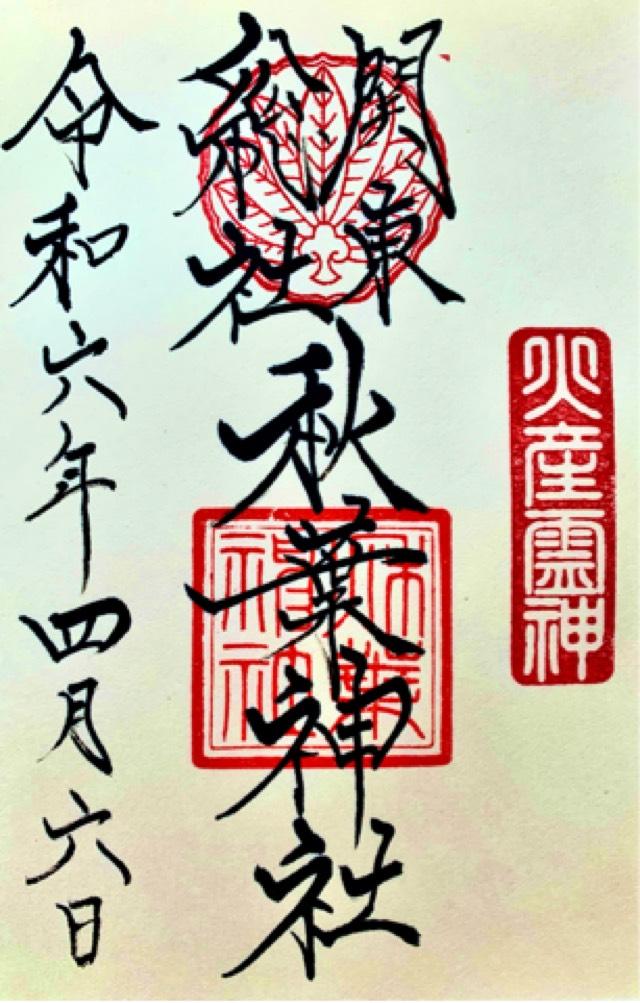 火産霊神
関東
総社
秋葉神社
令和六年四月六日